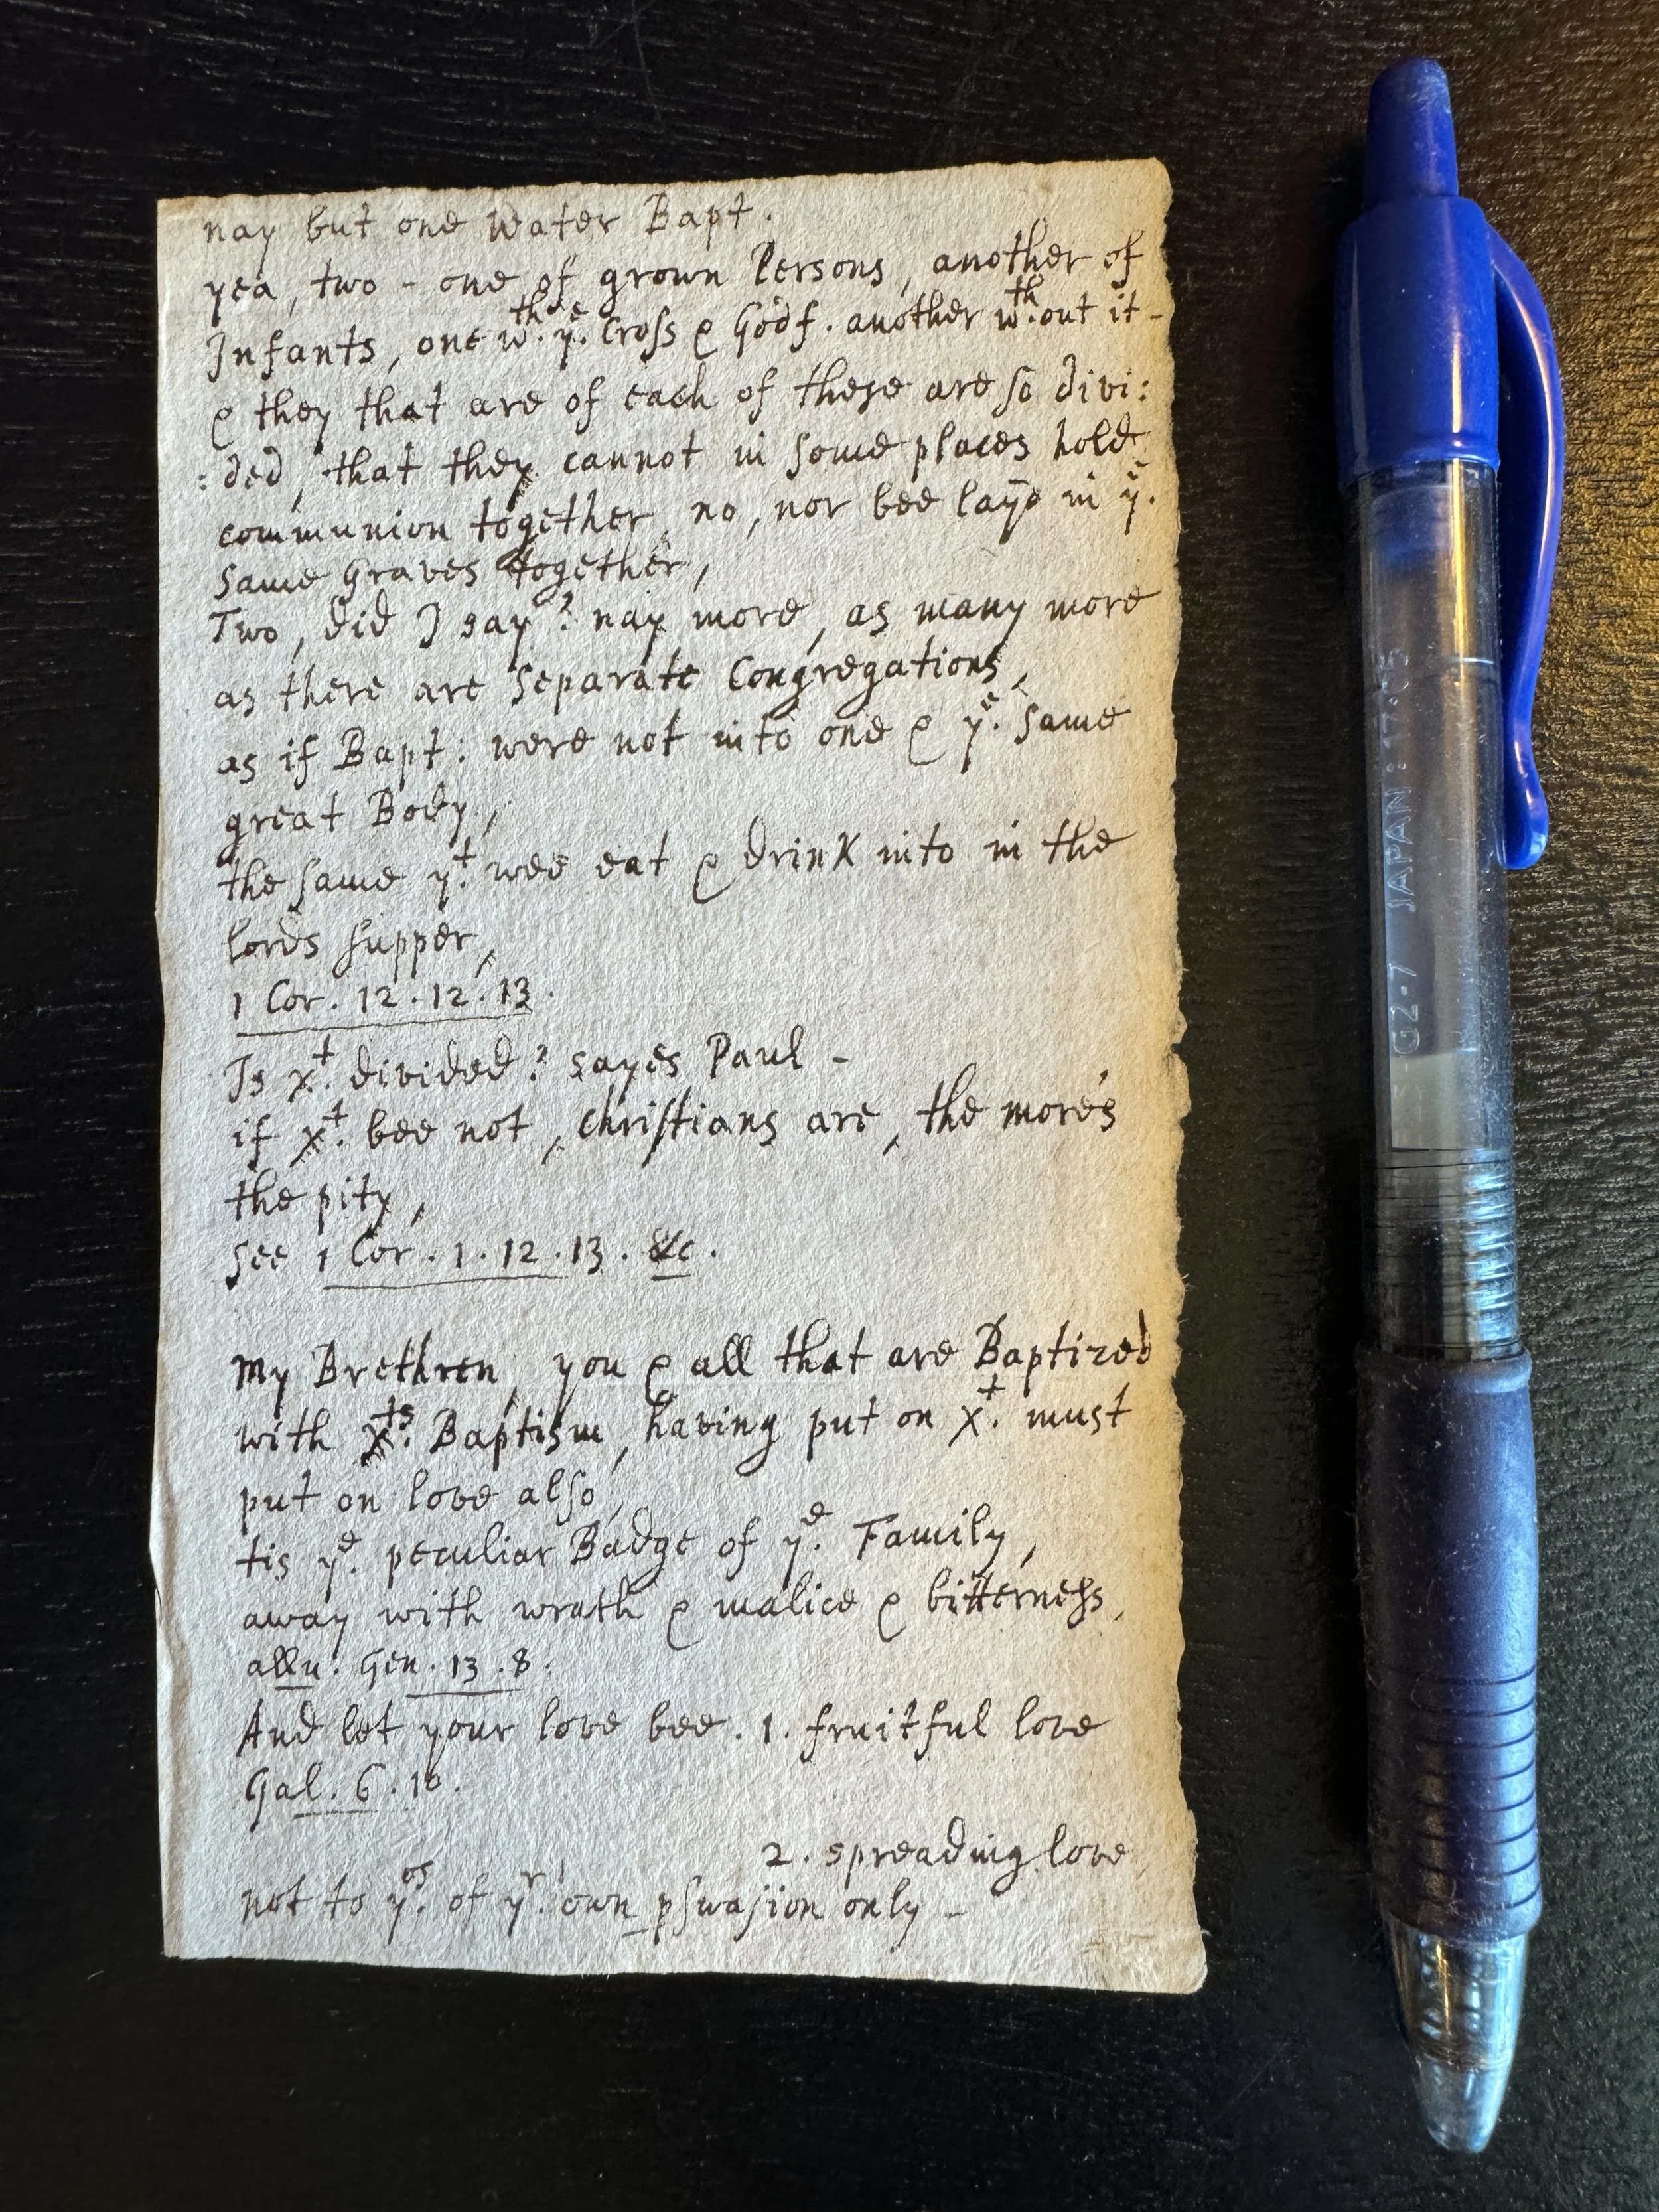 nay but one Water Bapt.
yea, two - one of grown Persons, another of
Infants, one wth. ye. Cross & Godf. another wth.out it -
& they that are of each of these are so divi:
:ded, that they cannot in some places hold
communion together, no, nor bee layd in ye.
same Graves together,
Two, did I say? nay more, as many more
as there are Separate Congregations,
as if Bapt: were not into one & ye. same
great Body,
the same yt. wee eat & drink into in the
lords supper,
1 Cor. 12. 12. 13.
Is Xt. divided? sayes Paul -
if Xt. bee not, christians are, the more's
the pity,
see 1 Cor. 1. 12. 13. &c.
My Brethren, you & all that are Baptized
with Xts. Baptism, having put on Xt. must
put on love also,
tis ye. peculiar Badge of ye. Family,
away with wrath & malice & bitterness,
allu. Gen. 13. 8.
And let your love bee. 1. fruitful love
Gal. 6. 10.
2. spreading love,
not to yos. of yr. own pswasion only -
G2·7 JAPAN